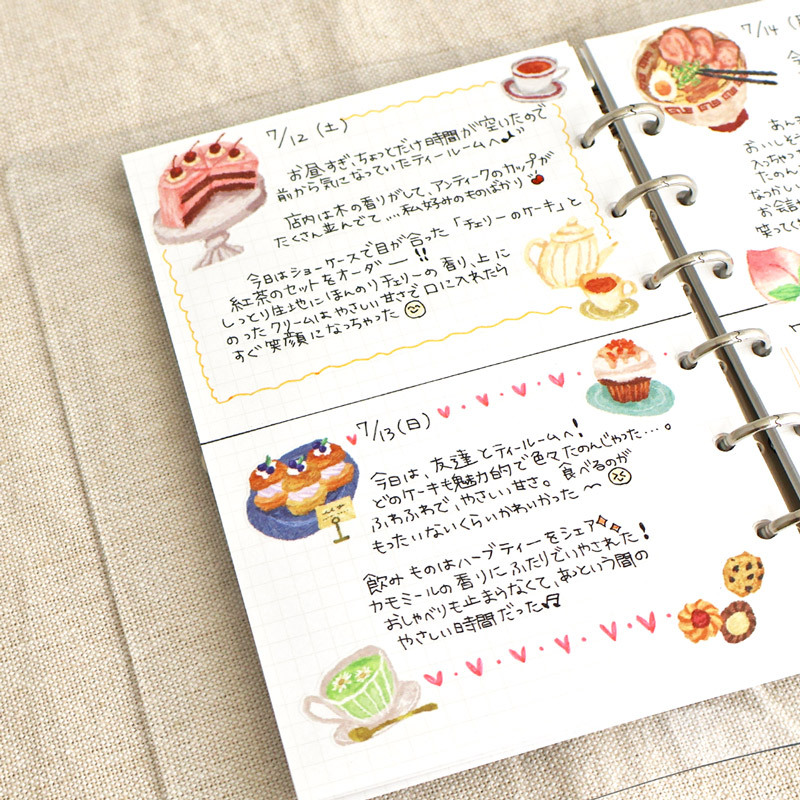 7/12 (土)
お昼すぎ、ちょっとだけ時間が空いたので
前から気になっていたティールームへ♪
店内は木の香りがして、アンティークのカップが
たくさん並んでて…私好みのものばかり
今日はショーケースで目が合った「チェリーのケーキ」と
紅茶のセットをオーダー!!
しっとり生地にほんのりチェリーの香り、上に
のったクリームはやさしい甘さで口に入れたら
すぐ笑顔になっちゃった
7/13(日)
今日は、友達とティールームへ!
どのケーキも魅力的で色々たのんじゃった…。
ふわふわで、やさしい甘さ。食べるのが
もったいないくらいかわいかった〜
飲みものはハーブティーをシェア
カモミールの香りにふたりでいやされた!
おしゃべりも止まらなくて、あっという間の
やさしい時間だった♫
7/14
今
あん
おいしそ
入っちゃっ
たのん
なつかし
お会
笑ってく
7